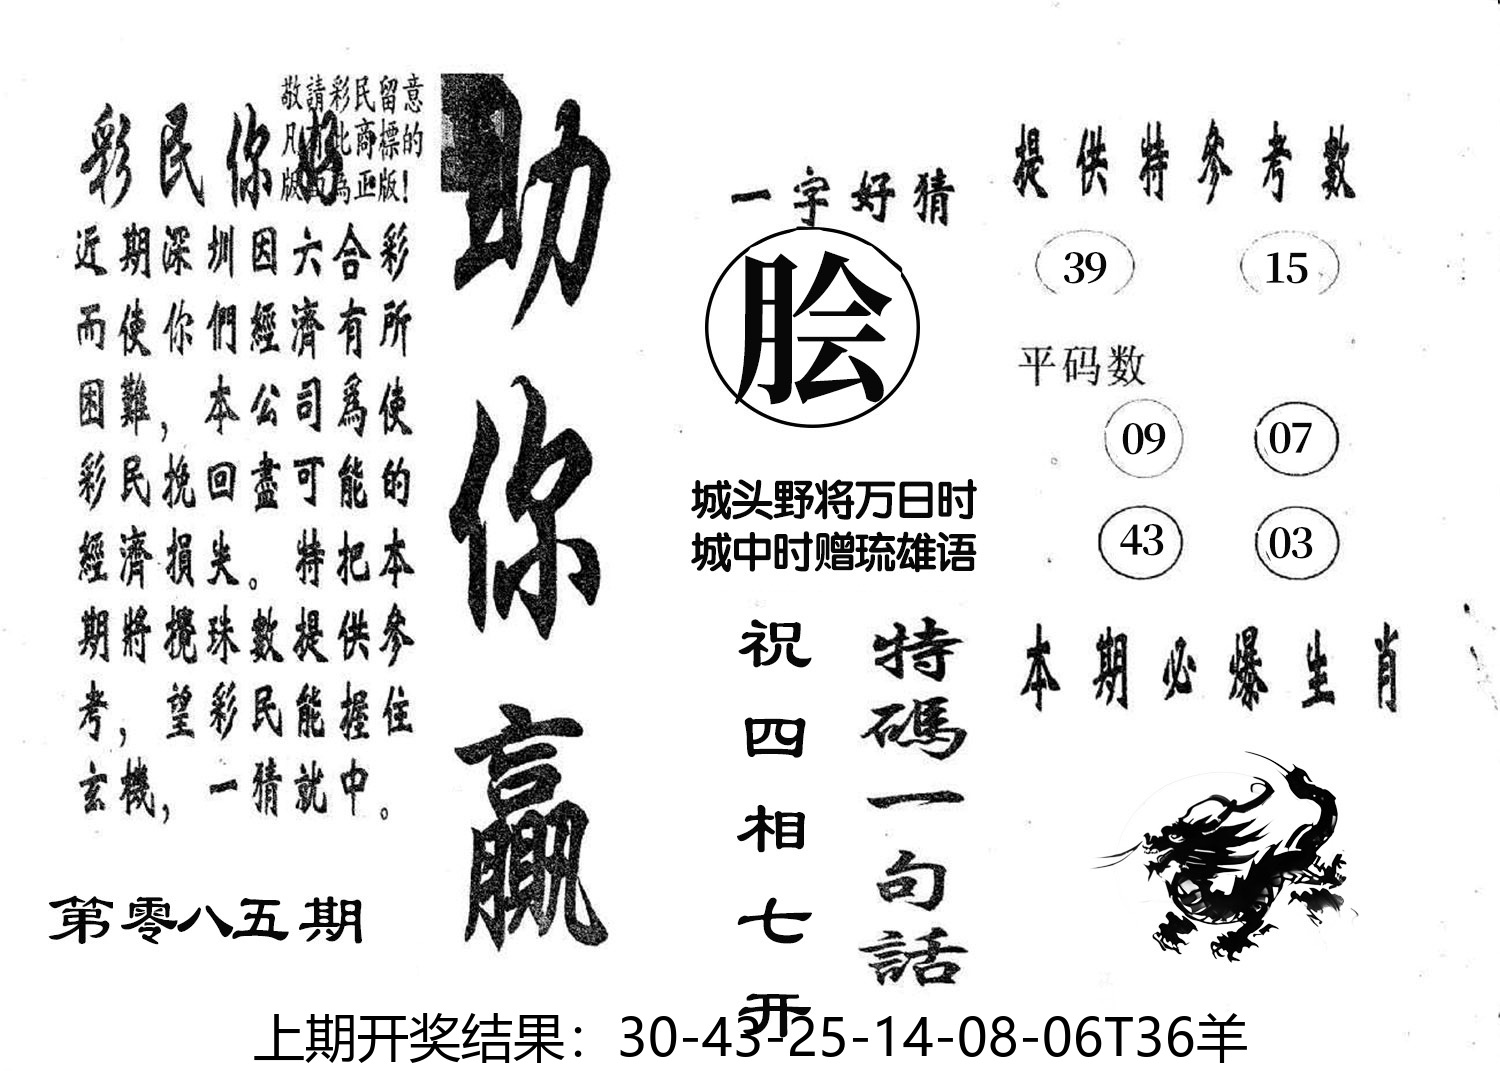 敬請彩民留意
凡有此商標的
版面為正版!
彩民你好
近期深圳因六合彩
而使你們經濟有所
困難，本公司爲使
彩民挽回盡可能的
經濟損失。特把本
期將攪珠數提供參
考，望彩民能握住
玄機，一猜就中。
第零八五期
助你赢
一字好猜
脍
城头野将万日时
城中时赠琉雄语
特碼一句話
祝四相七开
提供特參考數
39 15
平码数
09 07
43 03
本期必爆生肖
上期开奖结果：30-43-25-14-08-06T36羊